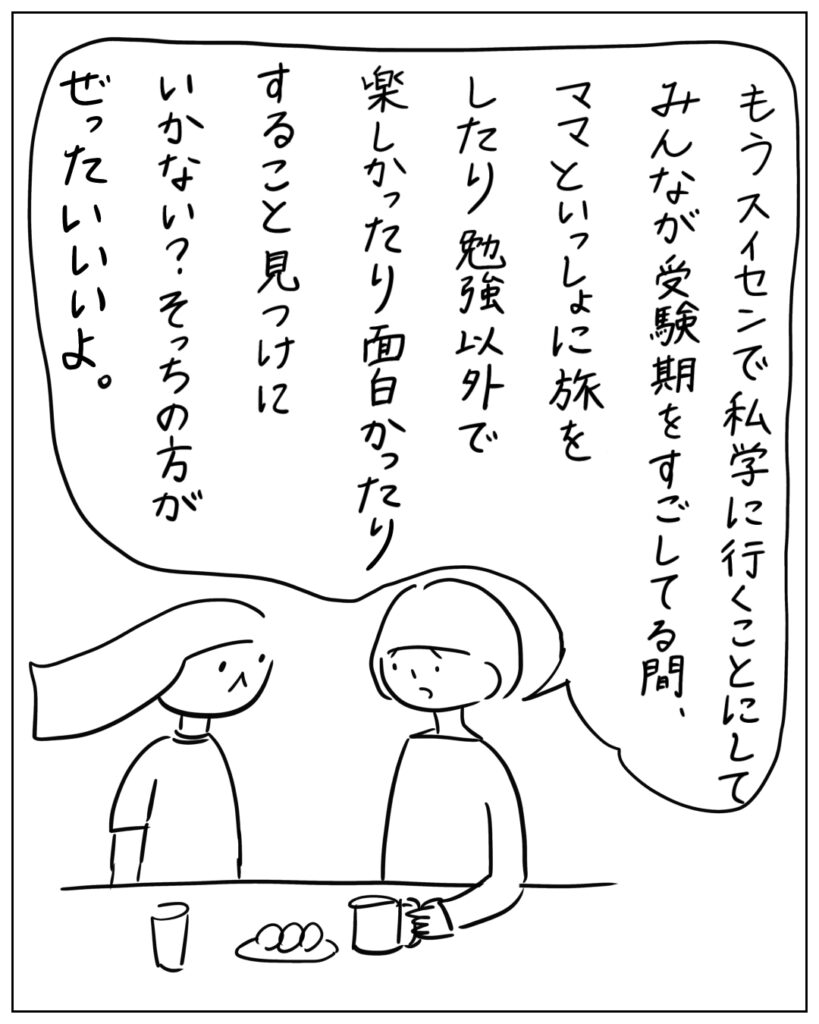 もうスイセンで私学に行くことにして
みんなが受験期をすごしてる間、
ママといっしょに旅を
したり勉強以外で
楽しかったり面白かったり
すること見つけに
いかない?そっちの方が
ぜったいいいよ。